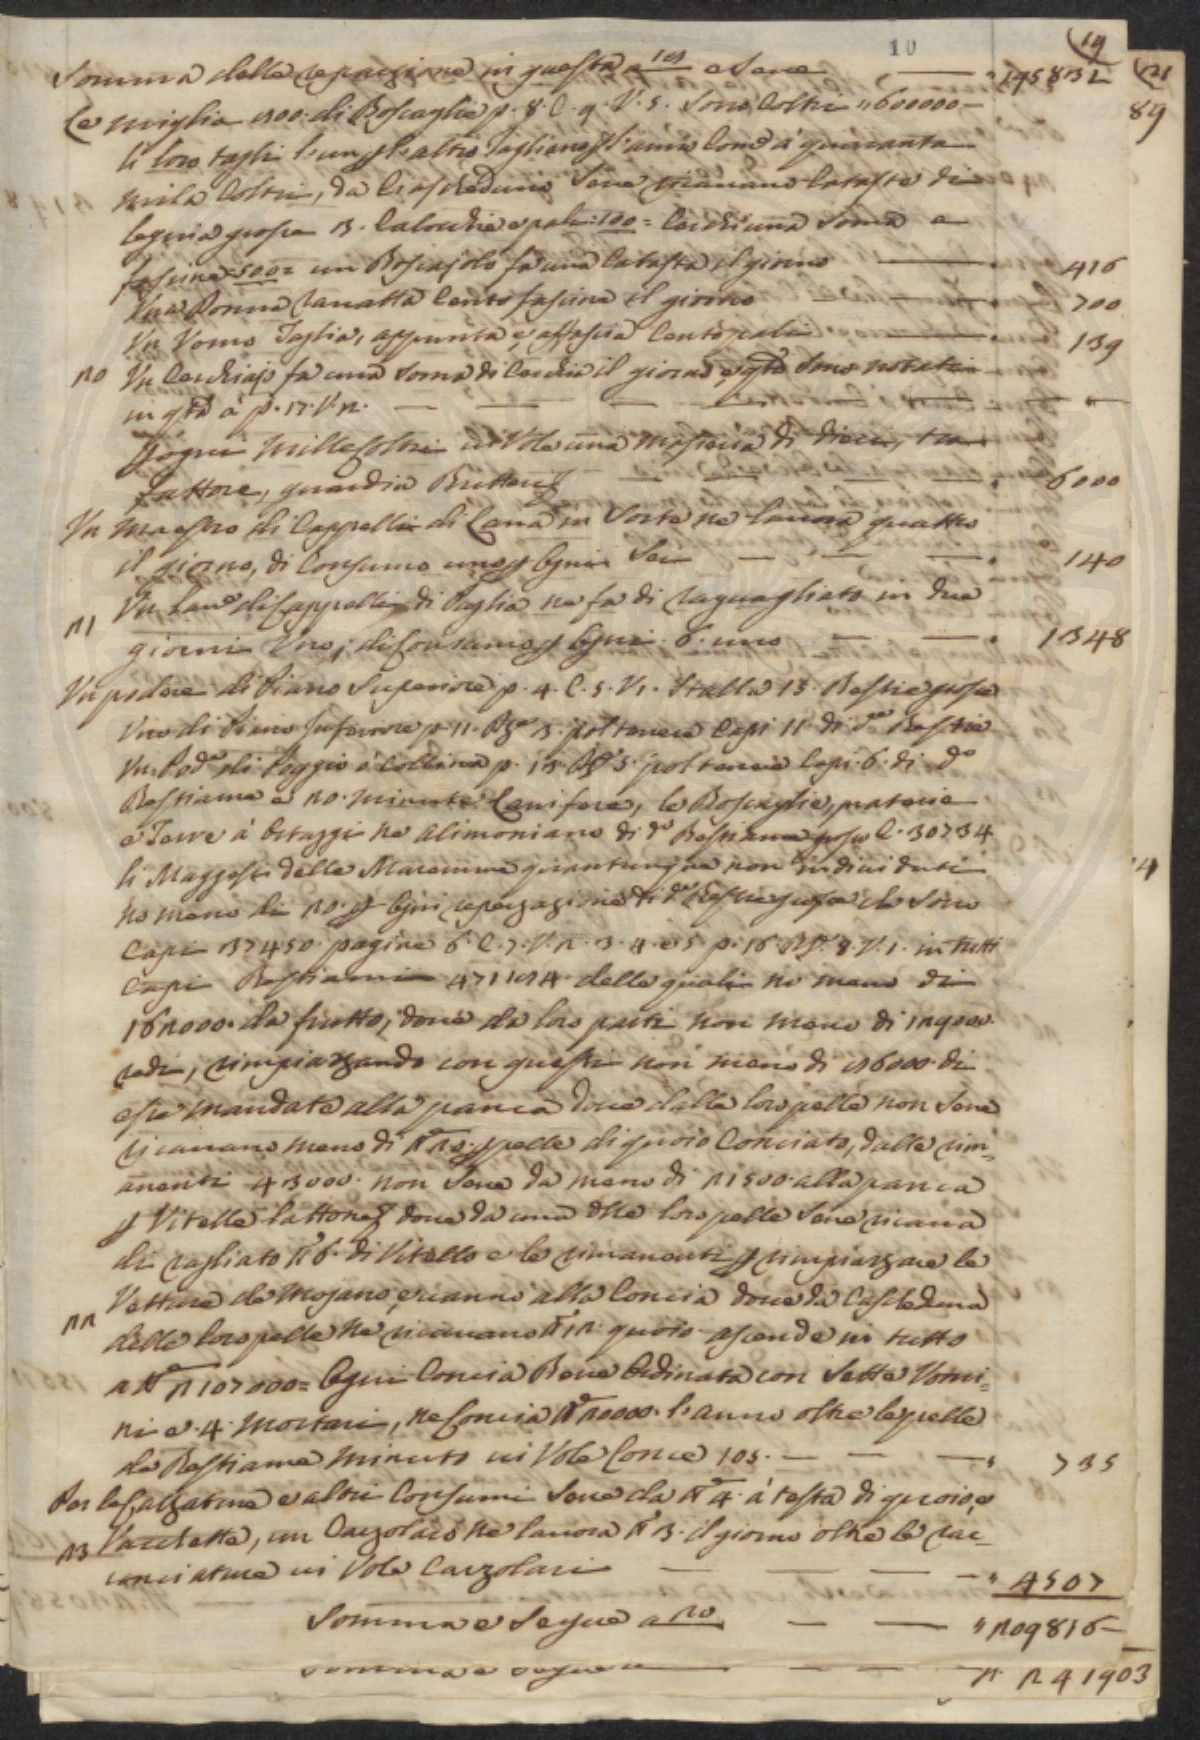 10
19
21
Somma della repuezione in questa a 19 e Sono — 195832
89
Le miglia 200 di Boscaglie p. 8. C. 9. V. 5. Sono Coltri 600000 —
li loro tagli l'un p l'altro Tagliano p l'anno Come a quaranta
mila Coltri, da Ciascheduno Sene ricavano Cataste di
legnia grosse 3. Calocchie e pali: 100 = Cerchi una Soma e
fascine = 500 = un Boscajolo fà una Catasta il giorno — 416
Una Donna ranatta Cento fascine il giorno — 700
Un Uomo Taglia, appunta e affascia Cento pali — 139
20 Un Cerchiajo fà una Soma di Cerchia il giorno e qti Sono notati
in qta à p. 17. V. 2. — — — — "
p ogni Mille Coltri ui Vole una Masseria di dieci, tra
fattore, guardia Butteri — — — 6000
Un Maestro di Cappelli di Lana in Sorte ne lauora quattro
il giorno, di Consumo uno p ogni Sei — — — 140
21 Un Lano di Cappelli di Paglia ne fà di raguagliato in due
giorni Uno, di Consumo p ogni 6. uno — — 1348
Un podere di Piano Superiore p. 4. C. 5. V. 1. Stalla 15. Bestie grosse
Uno di Piano Inferiore p. 11. 3. poltenere Capi 11 di de Bestie
Un Pode di Poggio ò Collina p. 15. 5. poltenere Capi 6. di do
Bestiame e 20. minuti Lanifere, le Boscaglie, praterie
e Terre à Ortaggi ne alimoniano di do Bestiame grosso C. 30734
li Maggesi delle Maremme quantunque non indiuiduti
4
no meno di 20. p ogni di de Bestie grosse che Sono
Capi 37450. pagine 6. C. 7. V. 2. 3. 4. e 5 p. 16. 8. V. 1. in tutti
Capi Bestiami delle quali no meno di
162000. da frutto, doue da loro parti non meno di 129000.
redi, rimpiazzando con questi non meno di 86000. di
esse mandate alla panca doue dalle loro pelle non Sene
ricauano meno di 20. p pelle di quoio Conciato, dalle rim-
anenti 43000. non Sene da meno di 21500. alla panca
p Vitelle lattone doue da una delle loro pelle Sene ricaua
di ragliato 6. di Vitello e le rimanenti p rimpiazzare le
Vetture che Mojano, e uanno alla Concia doue da Cascheduna
22 delle loro pelle ne ricauano 12. quoio ascende in tutto
a 2107000 = Ogni Concia Bene Ordinata con Sette Uomi=
ni e 4. Mortari, ne Concia 20000. l'anno oltre le pelle
de Bestiame Minuto ui Vole Conce 105. — — — 735
Per le Calzature e altri Consumi Sene da 4. à testa di quoio, e
23 Vacchetta, un Cazolaro ne lauora 3. il giorno oltre le rac-
conciature ui Vole Cazolari — — — 4507
Somma e Segue a 20 — — 209816 —
Somma e Segue a — — 241903